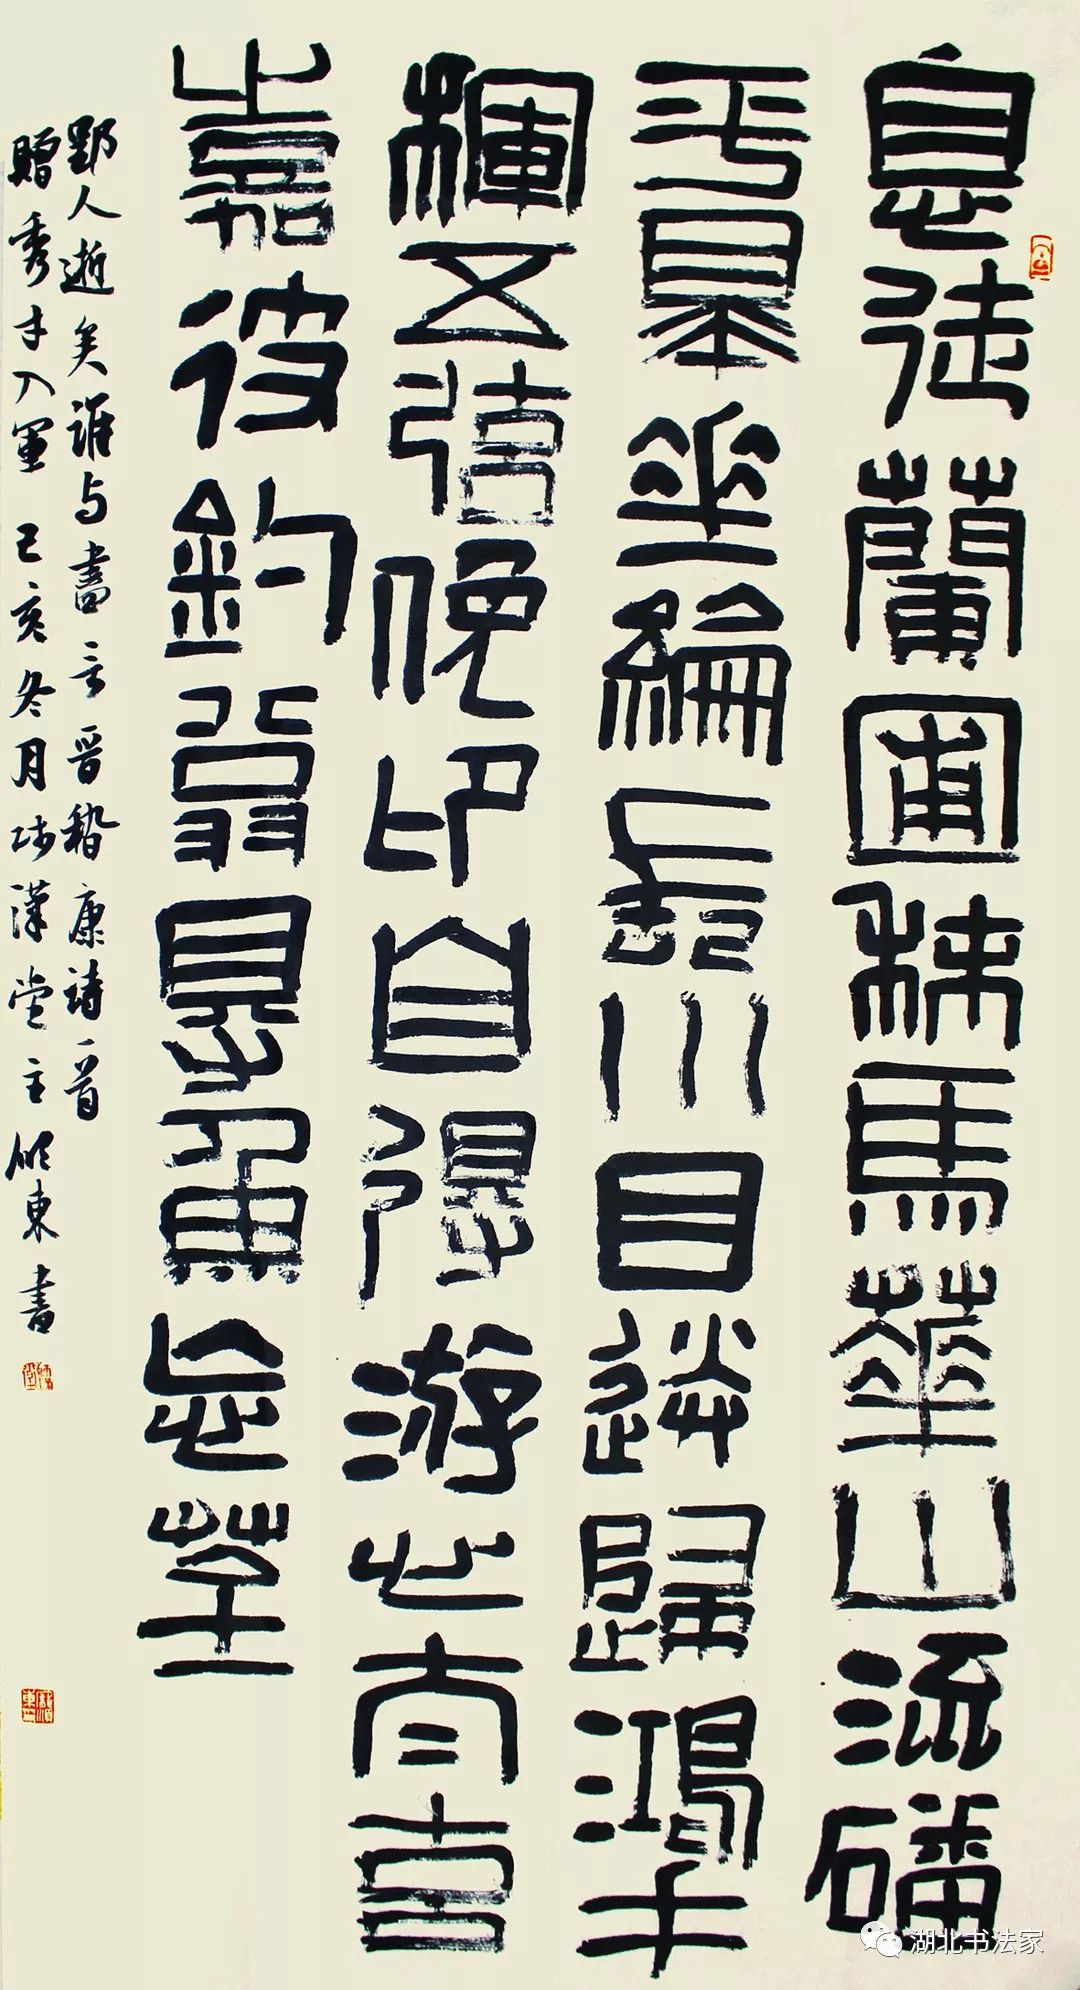 息徒蘭圃秣馬華山流磻
平皋垂綸長川目送歸鴻手
揮五弦俛卬自得游心太玄
嘉彼釣叟得魚忘荃
郢人逝矣誰与盡言晋嵇康詩一首
贈秀才入軍己亥冬月漢堂主東書
湖北书法家